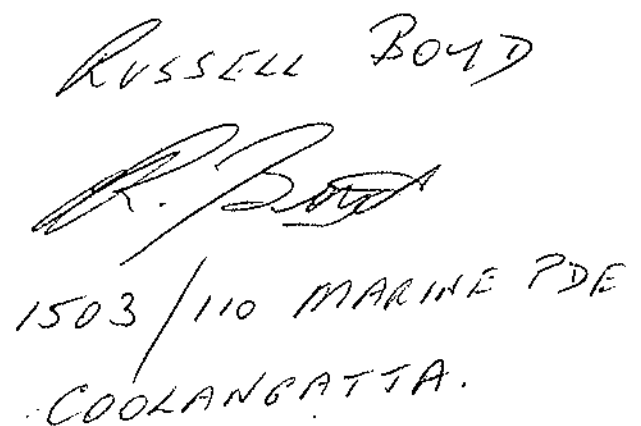 RUSSELL BOYD
R. Boyd
1503/110 MARINE PDE
COOLANGATTA.